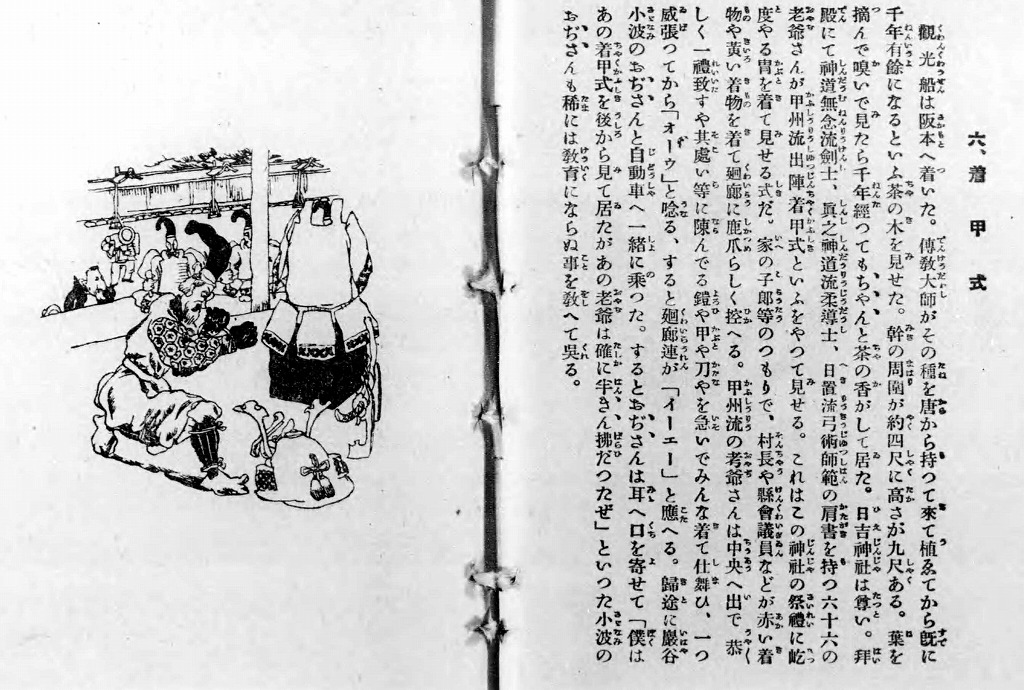 六、着甲式
觀光船は阪本へ着いた。傳敎大師がその種を唐から持つて來て植ゑてから旣に
千年有餘になるといふ茶の木を見せた。幹の周圍が約四尺に高さが九尺ある。葉を
摘んで嗅いで見たら千年經つてもちやんと茶の香がして居た。日吉神社は尊い。拜
殿にて神道無念流劍士、眞之神道流柔導士、日置流弓術師範の肩書を持つ六十六の
老爺さんが甲州流出陣着甲式といふをやつて見せる。これはこの神社の祭禮に屹
度やる冑を着て見せる式だ。家の子郎等のつもりで、村長や縣會議員などが赤い着
物や黃い着物を着て廻廊に鹿爪らしく控へる。甲州流の老爺さんは中央へ出で恭
しく一禮致すや其處い等に陳んでる鎧や甲や刀やを急いでみんな着て仕舞ひ、一つ
威張つてから「オーウ」と唸る、すると廻廊連が「イーエー」と應へる。歸途に巖谷
小波のおぢさんと自動車へ一緖に乘つた。するとおぢさんは耳へ口を寄せて「僕は
あの着甲式を後から見て居たがあの老爺は確に半きん拂だつたぜ」といつた小波の
おぢさんも稀には敎育にならぬ事を敎へて吳る。